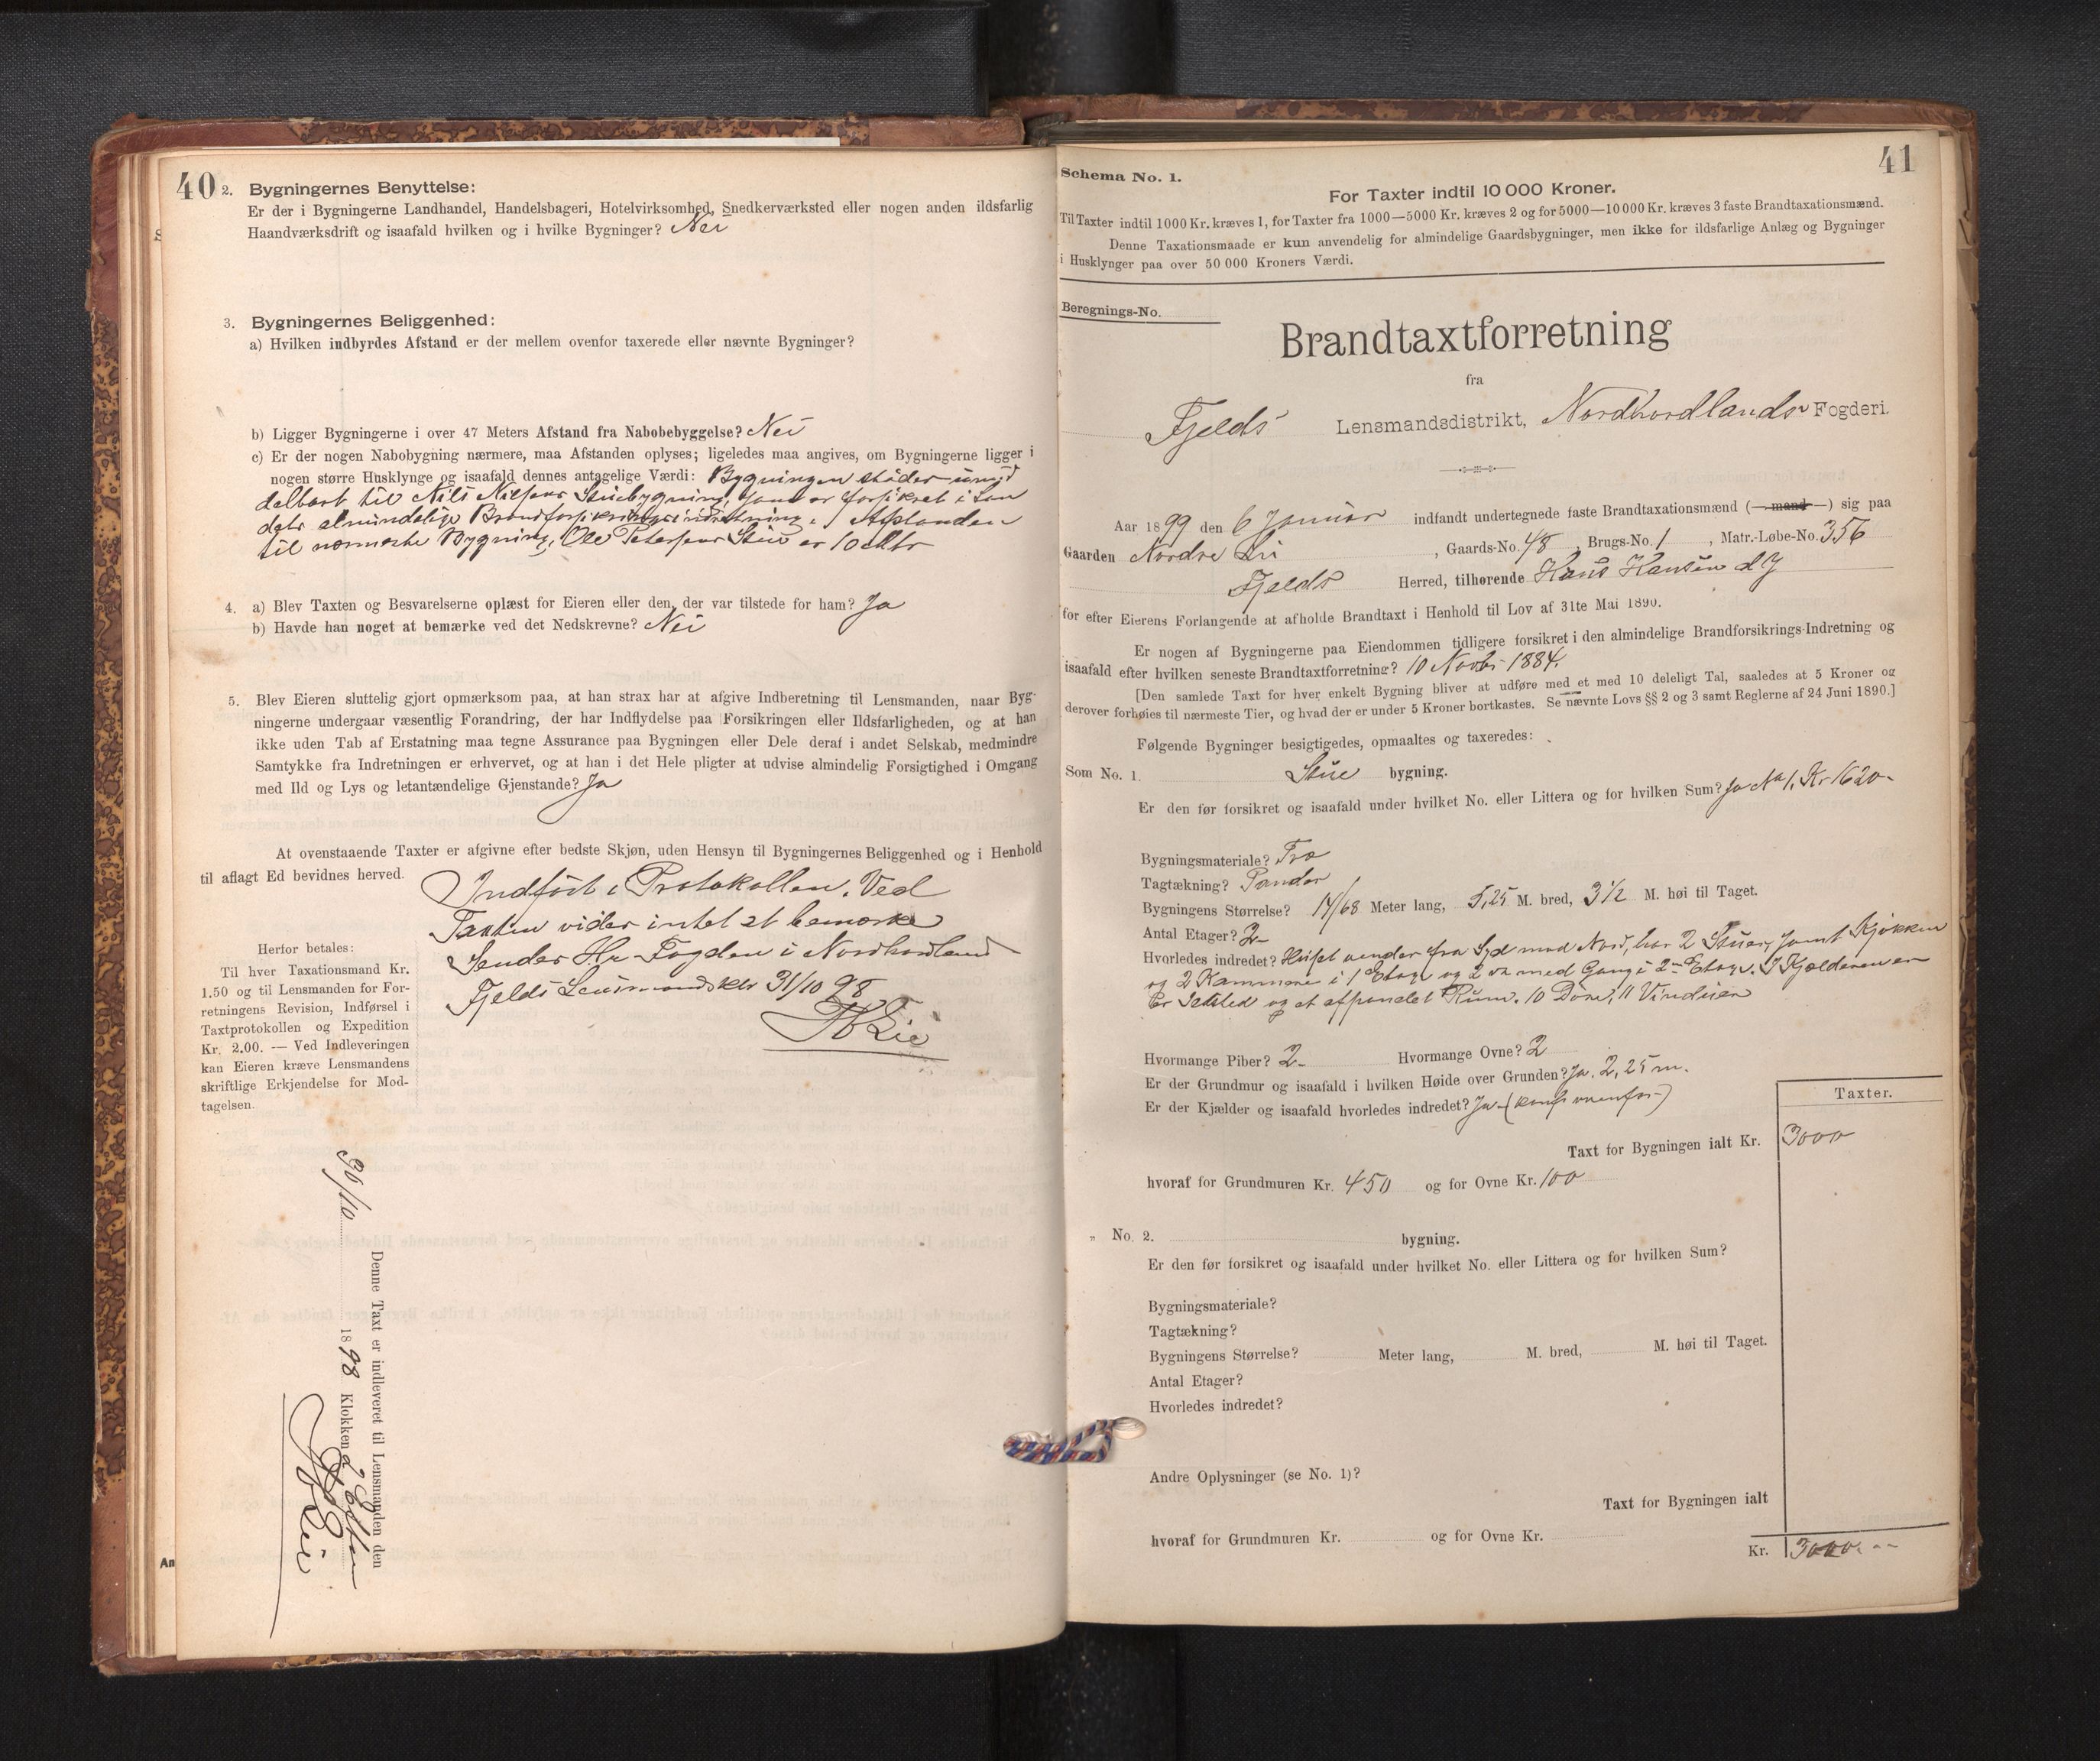 40
2. Bygningernes Benyttelse:
Er der i Bygningerne Landhandel, Handelsbageri, Hotelvirksomhed, Snedkerværksted eller nogen anden ildsfarlig
Haandværksdrift og isaafald hvilken og i hvilke Bygninger? Nei
3. Bygningernes Beliggenhed:
a) Hvilken indbyrdes Afstand er der mellem ovenfor taxerede eller nævnte Bygninger?
b) Ligger Bygningerne i over 47 Meters Afstand fra Nabobebyggelse? Nei
c) Er der nogen Nabobygning nærmere, maa Afstanden oplyses; ligeledes maa angives, om Bygningerne ligger i
nogen større Husklynge og isaafald dennes antagelige Værdi: Bygningen støder umid
delbart til Nils Nilsens Stuebygning, som er forsikret i Lan
dets almindelige Brandforsikringsindretning. Afstanden
til nærmeste Bygning, Ole Petersens Stue er 10 Mtr
4. a) Blev Taxten og Besvarelserne oplæst for Eieren eller den, der var tilstede for ham? Ja
b) Havde han noget at bemærke ved det Nedskrevne? Nei
5. Blev Eieren sluttelig gjort opmærksom paa, at han strax har at afgive Indberetning til Lensmanden, naar Byg-
ningerne undergaar væsentlig Forandring, der har Indflydelse paa Forsikringen eller Ildsfarligheden, og at han
ikke uden Tab af Erstatning maa tegne Assurance paa Bygningen eller Dele deraf i andet Selskab, medmindre
Samtykke fra Indretningen er erhvervet, og at han i det Hele pligter at udvise almindelig Forsigtighed i Omgang
med Ild og Lys og letantændelige Gjenstande? Ja
At ovenstaaende Taxter er afgivne efter bedste Skjøn, uden Hensyn til Bygningernes Beliggenhed og i Henhold
til aflagt Ed bevidnes herved.
Indført i Protokollen. Ved
Taxten vides intet at bemærke
Sendes Hr. Fogden i Nordhordland
Fjelds Lensmandsktr 31/10 98
Lie
Herfor betales:
Til hver Taxationsmand Kr.
1.50 og til Lensmanden for For-
retningens Revision, Indførsel i
Taxtprotokollen og Expedition
Kr. 2.00. — Ved Indleveringen
kan Eieren kræve Lensmandens
skriftlige Erkjendelse for Mod-
tagelsen.
Denne Taxt er indleveret til Lensmanden den
30/10 1898 Klokken 2 Efterm
Lie
41
Schema No. 1.
For Taxter indtil 10 000 Kroner.
Til Taxter indtil 1000 Kr. kræves 1, for Taxter fra 1000—5000 Kr. kræves 2 og for 5000—10 000 Kr. kræves 3 faste Brandtaxationsmænd.
Denne Taxationsmaade er kun anvendelig for almindelige Gaardsbygninger, men ikke for ildsfarlige Anlæg og Bygninger
i Husklynger paa over 50 000 Kroners Værdi.
Beregnings-No.
Brandtaxtforretning
fra
Fjelds Lensmandsdistrikt, Nordhordlands Fogderi.
Aar 1899 den 6 Januar indfandt undertegnede faste Brandtaxationsmænd (— mand —) sig paa
Gaarden Nordre Li, Gaards-No. 48, Brugs-No. 1, Matr.-Løbe-No. 356
Fjelds Herred, tilhørende Hans Hansen d. y
for efter Eierens Forlangende at afholde Brandtaxt i Henhold til Lov af 31te Mai 1890.
Er nogen af Bygningerne paa Eiendommen tidligere forsikret i den almindelige Brandforsikrings-Indretning og
isaafald efter hvilken seneste Brandtaxtforretning? 10 Novbr 1884.
[Den samlede Taxt for hver enkelt Bygning bliver at udføre med et med 10 deleligt Tal, saaledes at 5 Kroner og
derover forhøies til nærmeste Tier, og hvad der er under 5 Kroner bortkastes. Se nævnte Lovs §§ 2 og 3 samt Reglerne af 24 Juni 1890.]
Følgende Bygninger besigtigedes, opmaaltes og taxeredes:
Som No. 1. Stue bygning.
Er den før forsikret og isaafald under hvilket No. eller Littera og for hvilken Sum? Ja No 1. Kr 1620-
Bygningsmateriale? Træ
Tagtækning? Pander
Bygningens Størrelse? 14/68 Meter lang, 5,25 M. bred, 3 1/2 M. høi til Taget.
Antal Etager? 2-
Hvorledes indredet? Huset vender fra Syd mod Nord, har 2 Stuer, samt Kjøkken
og 2 Kammere i 1 Etage og 2 med Gang i 2den Etage. I Kjælderen er
et afpanelet Rum. 10 Døre, 11 Vinduer
Hvormange Piber? 2- Hvormange Ovne? 2
Er der Grundmur og isaafald i hvilken Høide over Grunden? Ja. 2,25 m.
Er der Kjælder og isaafald hvorledes indredet? Ja (conf ovenfor)
Taxter.
Taxt for Bygningen ialt Kr. 3000
hvoraf for Grundmuren Kr. 450 og for Ovne Kr. 100
„ No. 2. bygning.
Er den før forsikret og isaafald under hvilket No. eller Littera og for hvilken Sum?
Bygningsmateriale?
Tagtækning?
Bygningens Størrelse? Meter lang, M. bred, M. høi til Taget.
Antal Etager?
Hvorledes indredet?
Andre Oplysninger (se No. 1)?
Taxt for Bygningen ialt
hvoraf for Grundmuren Kr. og for Ovne Kr.
Kr. 3000. --